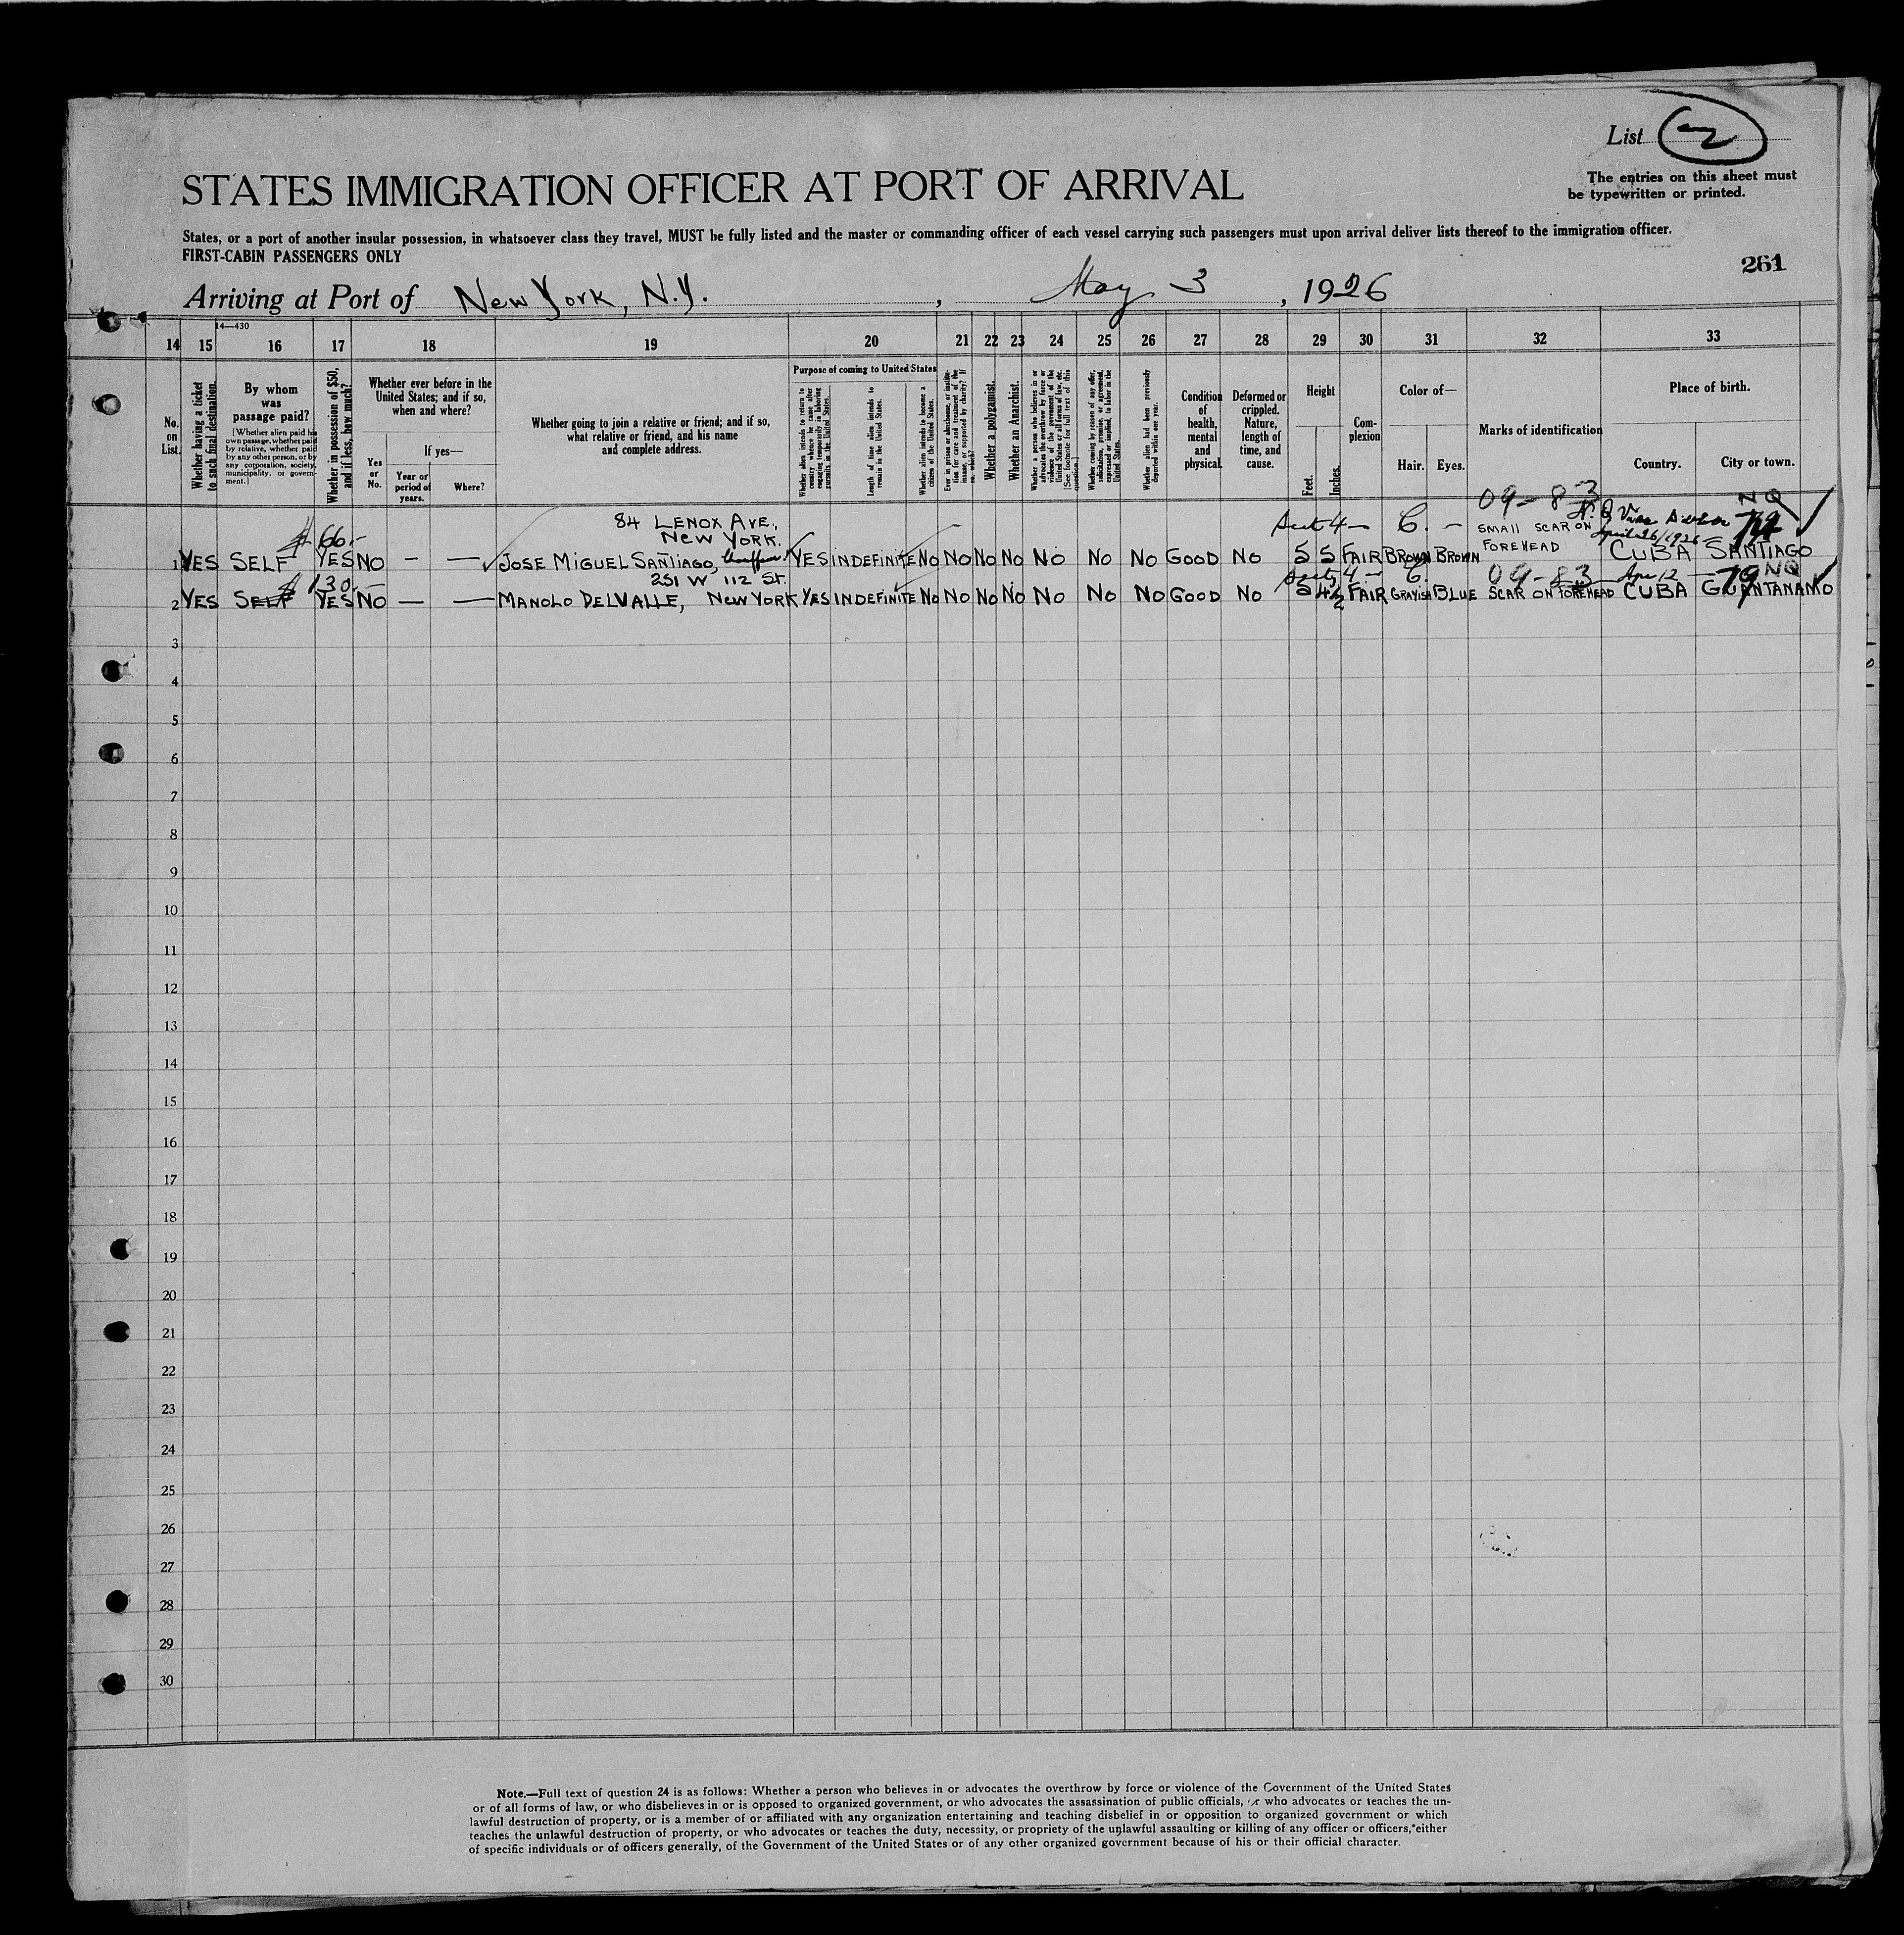 List 2
The entries on this sheet must
be typewritten or printed.
STATES IMMIGRATION OFFICER AT PORT OF ARRIVAL
States, or a port of another insular possession, in whatsoever class they travel, MUST be fully listed and the master or commanding officer of each vessel carrying such passengers must upon arrival deliver lists thereof to the immigration officer.
FIRST-CABIN PASSENGERS ONLY
261
Arriving at Port of New York, N.Y. , May 3 , 1926
14—430
14 15 16 17 18 19 20 21 22 23 24 25 26 27 28 29 30 31 32 33
No. on List.
Whether having a ticket to such final destination.
By whom was passage paid?
[Whether alien paid his own passage, whether paid by relative, whether paid by any other person, or by any corporation, society, municipality, or government.]
Whether in possession of $50, and if less, how much?
Whether ever before in the United States; and if so, when and where?
Yes or No.
If yes—
Year or period of years.
Where?
Whether going to join a relative or friend; and if so, what relative or friend, and his name and complete address.
Purpose of coming to United States
Whether alien intends to return to country whence he came after engaging temporarily in laboring pursuits in the United States.
Length of time alien intends to remain in the United States.
Whether alien intends to become a citizen of the United States.
Ever in prison or almshouse, or institution for care and treatment of the insane, or supported by charity? If so, which?
Whether a polygamist.
Whether an Anarchist.
Whether a person who believes in or advocates the overthrow by force or violence of the government of the United States or all forms of law, etc. [See footnote for full text of this question.]
Whether coming by reason of any offer, solicitation, promise, or agreement, expressed or implied, to labor in the United States.
Whether alien had been previously deported within one year.
Condition of health, mental and physical.
Deformed or crippled. Nature, length of time, and cause.
Height
Feet. Inches.
Complexion
Color of—
Hair. Eyes.
Marks of identification
Place of birth.
Country. City or town.
09-83 NQ
84 LENOX AVE., Sect 4- 6.-
$ 66.- NEW YORK. SMALL SCAR ON April 26/1926
1 YES SELF YES NO — — JOSE MIGUEL SANTIAGO, YES INDEFINITE NO NO NO NO NO NO NO GOOD NO 5 5 FAIR BROWN BROWN FOREHEAD CUBA SANTIAGO
$ 130.- 251 W 112 ST. Sect 4- 6. 09-83 Apr 12 79 NQ
2 YES SELF YES NO — — MANOLO DELVALLE, NEW YORK YES INDEFINITE NO NO NO NO NO NO NO GOOD NO 5 4½ FAIR GRAYISH BLUE SCAR ON FOREHEAD CUBA GUANTANAMO
3
4
5
6
7
8
9
10
11
12
13
14
15
16
17
18
19
20
21
22
23
24
25
26
27
28
29
30
Note.—Full text of question 24 is as follows: Whether a person who believes in or advocates the overthrow by force or violence of the Government of the United States
or of all forms of law, or who disbelieves in or is opposed to organized government, or who advocates the assassination of public officials, or who advocates or teaches the un-
lawful destruction of property, or is a member of or affiliated with any organization entertaining and teaching disbelief in or opposition to organized government or which
teaches the unlawful destruction of property, or who advocates or teaches the duty, necessity, or propriety of the unlawful assaulting or killing of any officer or officers, either
of specific individuals or of officers generally, of the Government of the United States or of any other organized government because of his or their official character.